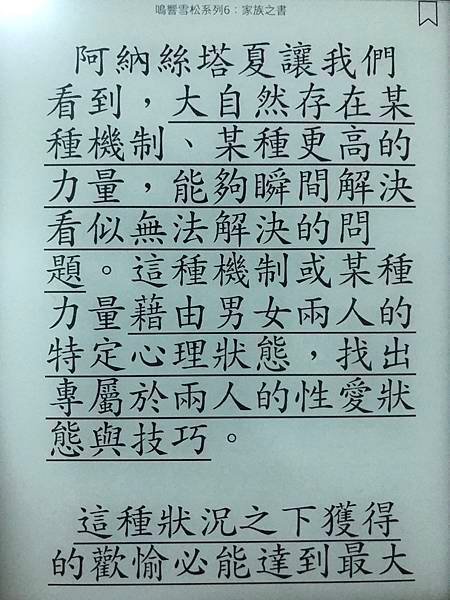 鳴響雪松系列6：家族之書
阿納絲塔夏讓我們
看到，大自然存在某
種機制、某種更高的
力量，能夠瞬間解決
看似無法解決的問
題。這種機制或某種
力量藉由男女兩人的
特定心理狀態，找出
專屬於兩人的性愛狀
態與技巧。
這種狀況之下獲得
的歡愉必能達到最大